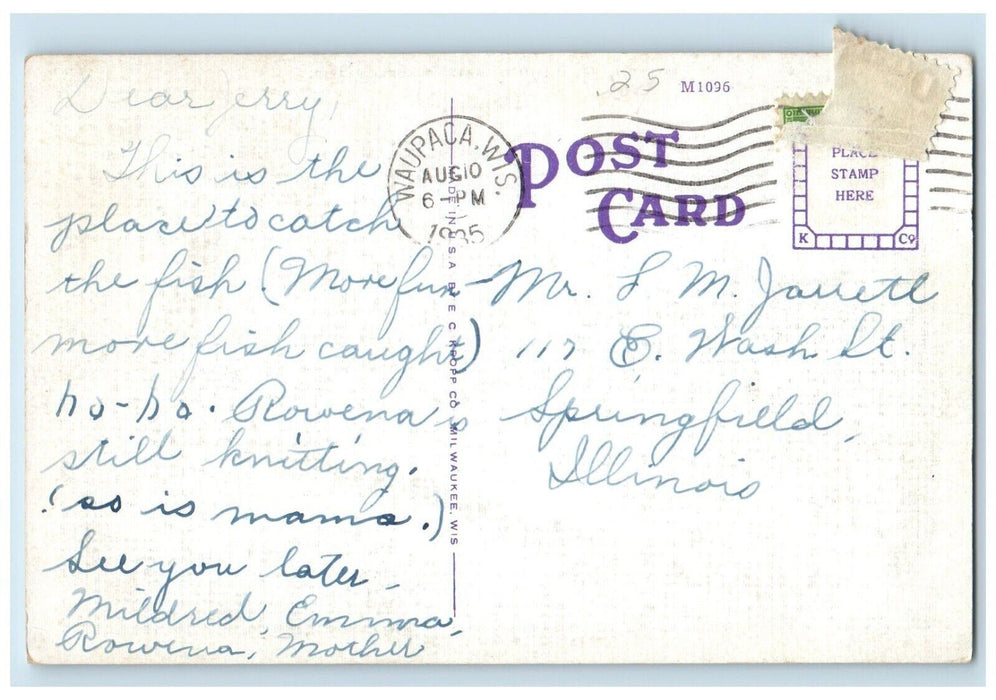 Dear Jerry,
This is the
place to catch
the fish (More fun -
more fish caught)
ho-ho. Rowena is
still knitting.
(so is mama.)
See you later,
Mildred, Emma,
Rowena, Mother
WAUPACA, WIS.
AUG 10
6 - PM
1935
MADE IN U.S.A. BY E. C. KROPP CO. MILWAUKEE, WIS
25
M1096
POST
CARD
PLACE
STAMP
HERE
K Co
Mr. L M. Jarrett
117 E. Wash St.
Springfield,
Illinois